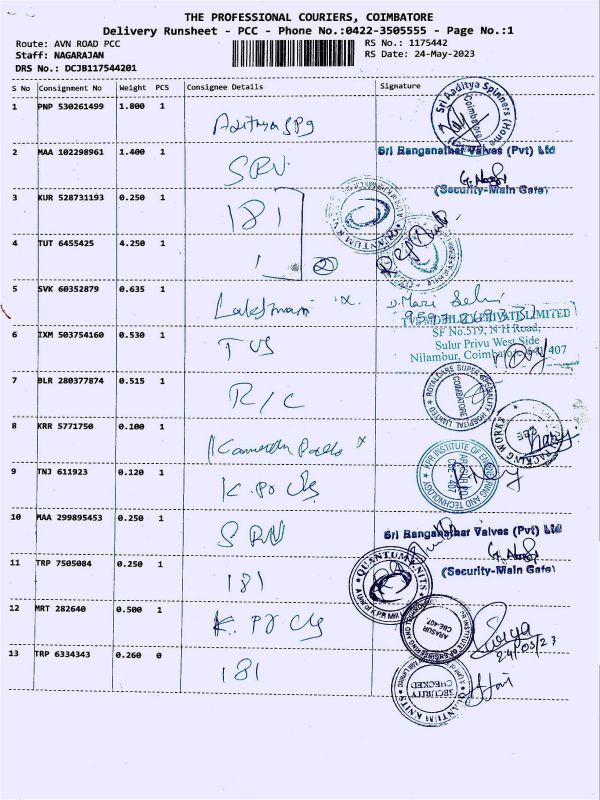 THE PROFESSIONAL COURIERS, COIMBATORE
Delivery Runsheet - PCC - Phone No.:0422-3505555 - Page No.:1
Route: AVN ROAD PCC
RS No.: 1175442
Staff: NAGARAJAN
RS Date: 24-May-2023
DRS No.: DCJB117544201
S No Consignment No Weight PCS Consignee Details Signature
1 PNP 530261499 1.800 1
Sri Aaditya Spinners (Home
Coimbatore
2 MAA 102298961 1.400 1 SRV
Sri Ranganathar Valves (Pvt) Ltd
(Security-Main Gate)
3 KUR 528731193 0.250 1 181
QUANTUM
4 TUT 6455425 4.250 1 1 2
5 SVK 60352879 0.635 1 Lakshmani
LIMITED
SF No.519, N H Road,
6 IXM 503754160 0.530 1 TVS
Sulur Privu West Side
Nilambur, Coimbatore 641 407
7 BLR 280377874 0.515 1 R/C
ROYALCARE SUPER SPECIALITY HOSPITAL LIMITED
COIMBATORE
8 KRR 5771750 0.100 1
PACKING WORKS
CBE
9 TNJ 611923 0.120 1 K.Pr Clg
KPR INSTITUTE OF ENGINEERING AND TECHNOLOGY
10 MAA 299895453 0.250 1 SRN
Sri Ranganathar Valves (Pvt) Ltd
(Security-Main Gate)
11 TRP 7505084 0.250 1 181
QUANTUM KNITS
A Unit of K.P.R Mill Limited
12 MRT 282640 0.500 1 K. Pr Clg
ARASUR
CBE-407.
Surya
24/05/23
13 TRP 6334343 0.260 0 181
SECURITY
CHECKED
QUANTUM KNITS